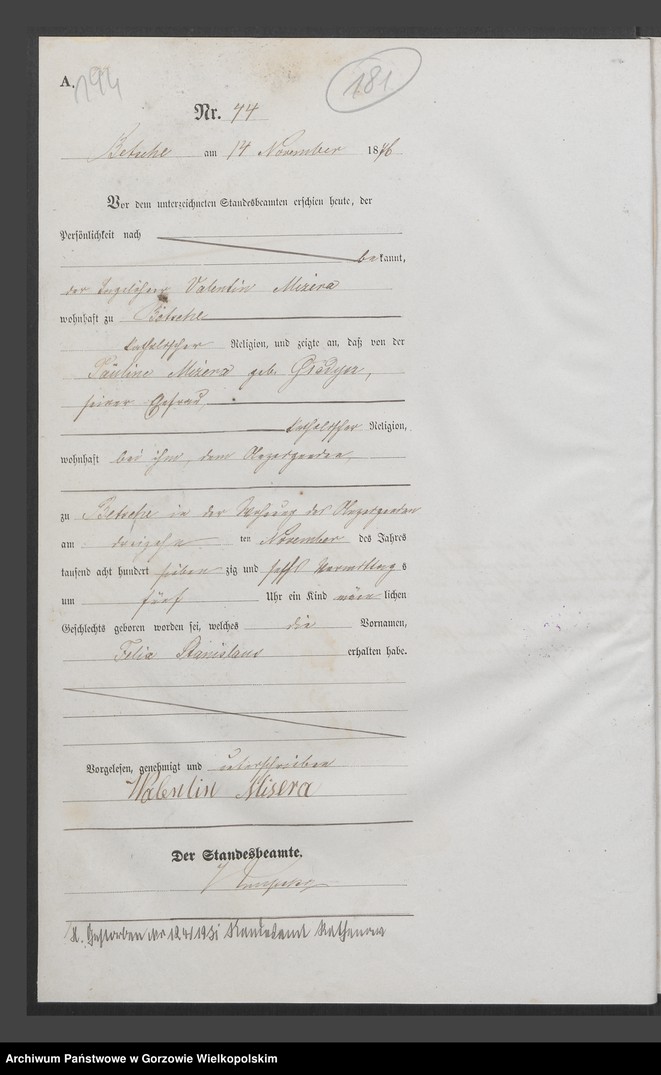 A.
194
181
Nr. 74
Betsche am 14 November 1876
Vor dem unterzeichneten Standesbeamten erschien heute, der
Persönlichkeit nach
bekannt,
der Tagelöhner Valentin Mizera
wohnhaft zu Betsche
katholischer Religion, und zeigte an, daß von der
Pauline Mizera geb.
seiner Ehefrau
katholischer Religion,
wohnhaft bei ihm, dem Anzeigenden,
zu Betsche in der Wohnung des Anzeigenden
am dreizehnten November des Jahres
tausend acht hundert siebenzig und sechs Vormittags
um fünf Uhr ein Kind männlichen
Geschlechts geboren worden sei, welches die Vornamen,
Felix Stanislaus erhalten habe.
Vorgelesen, genehmigt und unterschrieben
Valentin Misera
Der Standesbeamte.
H. Gestorben Nr 124/1931 Standesamt Rathenow
Archiwum Państwowe w Gorzowie Wielkopolskim